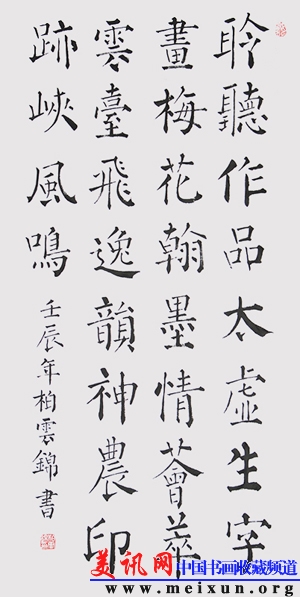 聆聽作品太虛生字
畫梅花翰墨情薈萃
雲臺飛逸韻神農印
跡峽風鳴
壬辰年柏雲錦書
美讯网 中国书画收藏频道
www.meixun.org